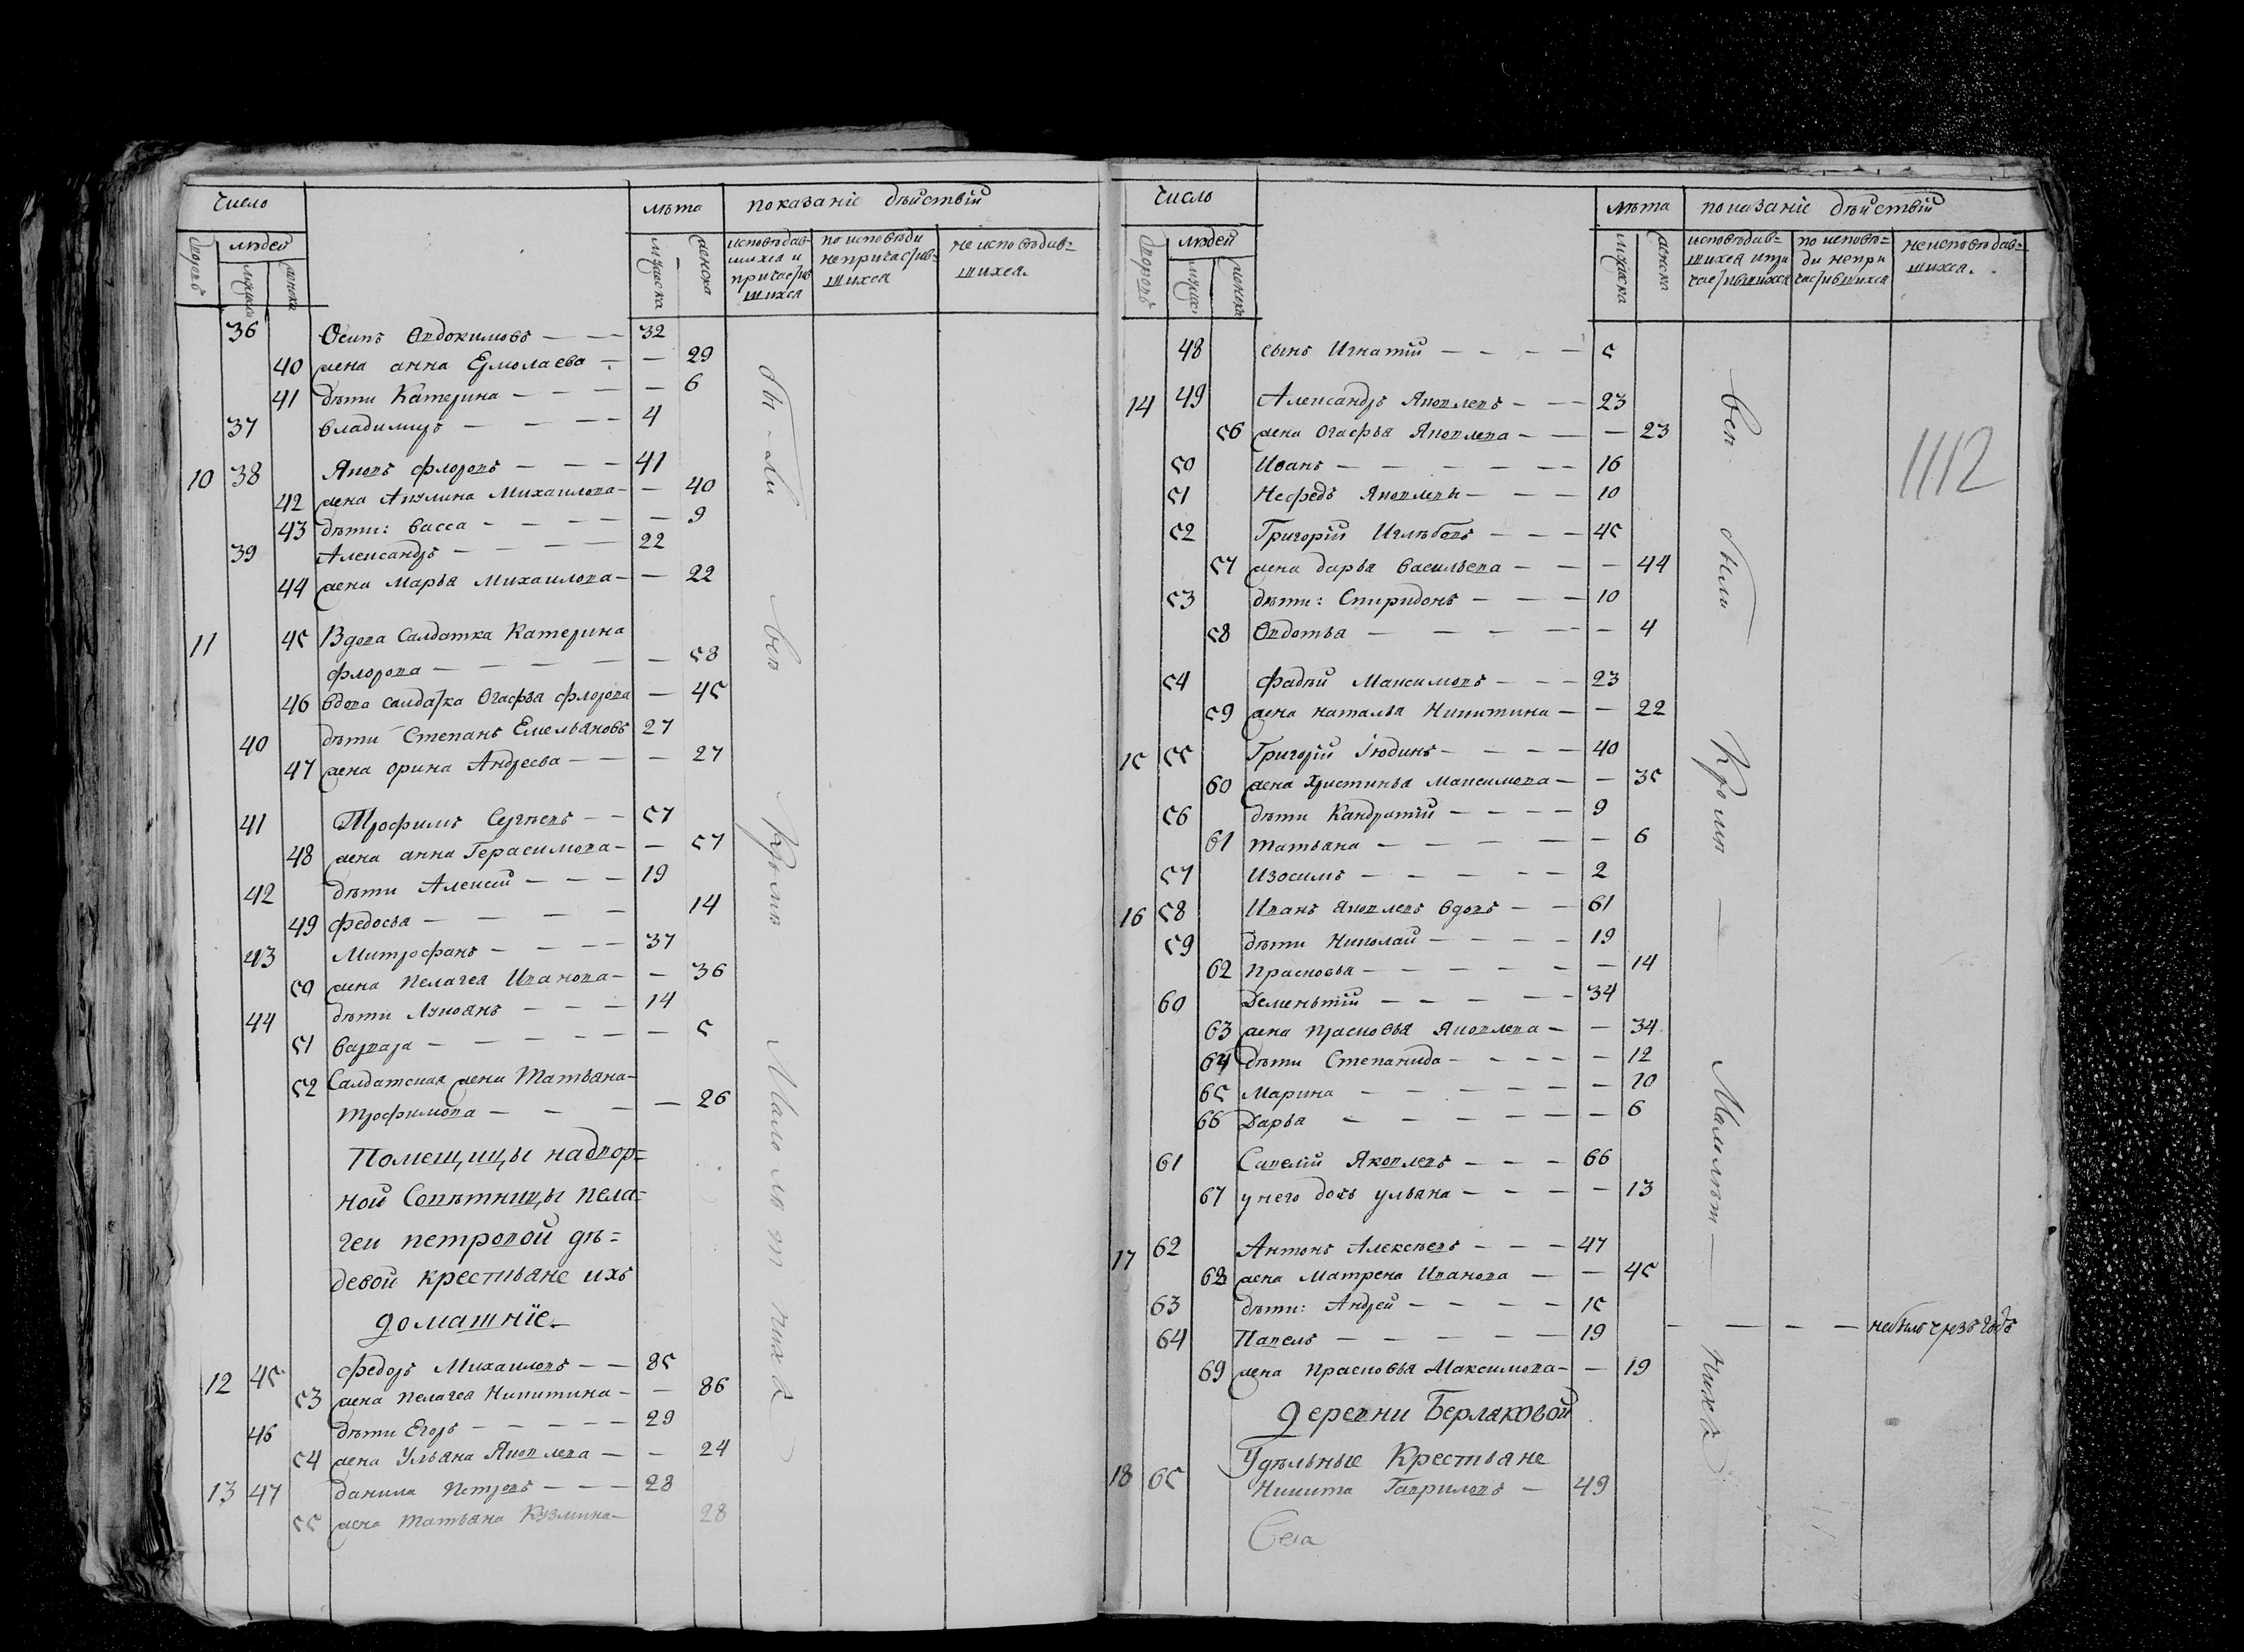 Число
лѣта
показаніе дѣйствій
дворовъ
людей
мужеска
женска
мужеска
женска
исповѣдав-
шихся и
причастив
шихся
по исповѣди
непричастив-
шихся
не исповѣдав=
шихся.
36 Осипъ Овдокимовъ — — 32
40 жена анна Ермолаева — — 29
41 дѣти Катерина — — — 6
37 владимиръ — — — 4
10 38 Яковъ флоровъ — — — 41
42 жена Акулина Михаилова — — 40
43 дѣти: васса — — — — 9
39 Александръ — — — — 22
44 жена Марья Михаилова — — 22
11 45 Вдова Салдатка Катерина
флорова — — — — — 58
46 вдова салдатка Огафья флорова — 45
40 дѣти Степанъ Емельяновъ 27
47 жена орина Андреева — — — 27
41 Трофимъ Сергѣевъ — — 57
48 жена анна Герасимова — — 57
42 дѣти Алексѣй — — — 19
49 федосья — — — — 14
43 Митрофанъ — — — — 37
50 жена пелагея Иванова — — 36
44 дѣти Лукоянъ — — — 14
51 варвара — — — — — — 5
52 Салдатская жена Татьяна
трофимова — — — — 26
Помещицы надвор=
ной Совѣтницы пела=
геи петровой дѣ=
девой крестьяне ихъ
домашнїе
12 45 федоръ Михаиловъ — — 85
53 жена пелагея Никитина — — 86
46 дѣти Егоръ — — — — — 29
54 жена Ульяна Яковлева — — 24
13 47 данила петровъ — — — 28
55 жена татьяна Кузмина — 28
были всѣ кромѣ Малолѣтнихъ
Число
лѣта
показаніе дѣйствій
дворовъ
людей
мужеска
женска
мужеска
женска
исповѣдав=
шихся и при
частившихся
по исповѣ=
ди непри
частившихся
неисповѣдав=
шихся.
1112
48 сынъ Игнатій — — — — 5
14 49 Александръ Яковлевъ — — — 23
56 жена Огафья Яковлева — — — 23
50 Иванъ — — — — — — 16
51 Нефедъ Яковлевъ — — — 10
52 Григорій Иглѣбовъ — — — 45
57 жена дарья васильева — — — 44
53 дѣти: Спиридонъ — — — 10
58 Овдотья — — — — — 4
54 фадѣй Максимовъ — — — 23
59 жена наталья Никитина — — 22
15 55 Григорій Iюдинъ — — — — 40
60 жена Христинья Максимова — — 35
56 дѣти Кандратій — — — — 9
61 татьяна — — — — — 6
57 Изосимъ — — — — — 2
16 58 Иванъ яковлевъ вдовъ — — 61
59 дѣти Николай — — — — 19
62 прасковья — — — — — — 14
60 Дементій — — — — — 34
63 жена прасковья Яковлева — — 34
64 дѣти Степанида — — — — — 12
65 Марина — — — — — — — 10
66 Дарья — — — — — — — 6
61 Савелій Яковлевъ — — — 66
67 у него дочь ульяна — — — — 13
17 62 Антонъ Алексѣевъ — — — 47
68 жена Матрена Иванова — — 45
63 дѣти: Андрей — — — — 15
64 Павелъ — — — — — — 19 — — — — небылъ чрезъ годъ
69 жена прасковья Максимова — — 19
деревни Берлаковой
Удѣльные Крестьяне
18 65 Никита Гавриловъ — 49
всѣ были Кромѣ — Малолѣтнихъ